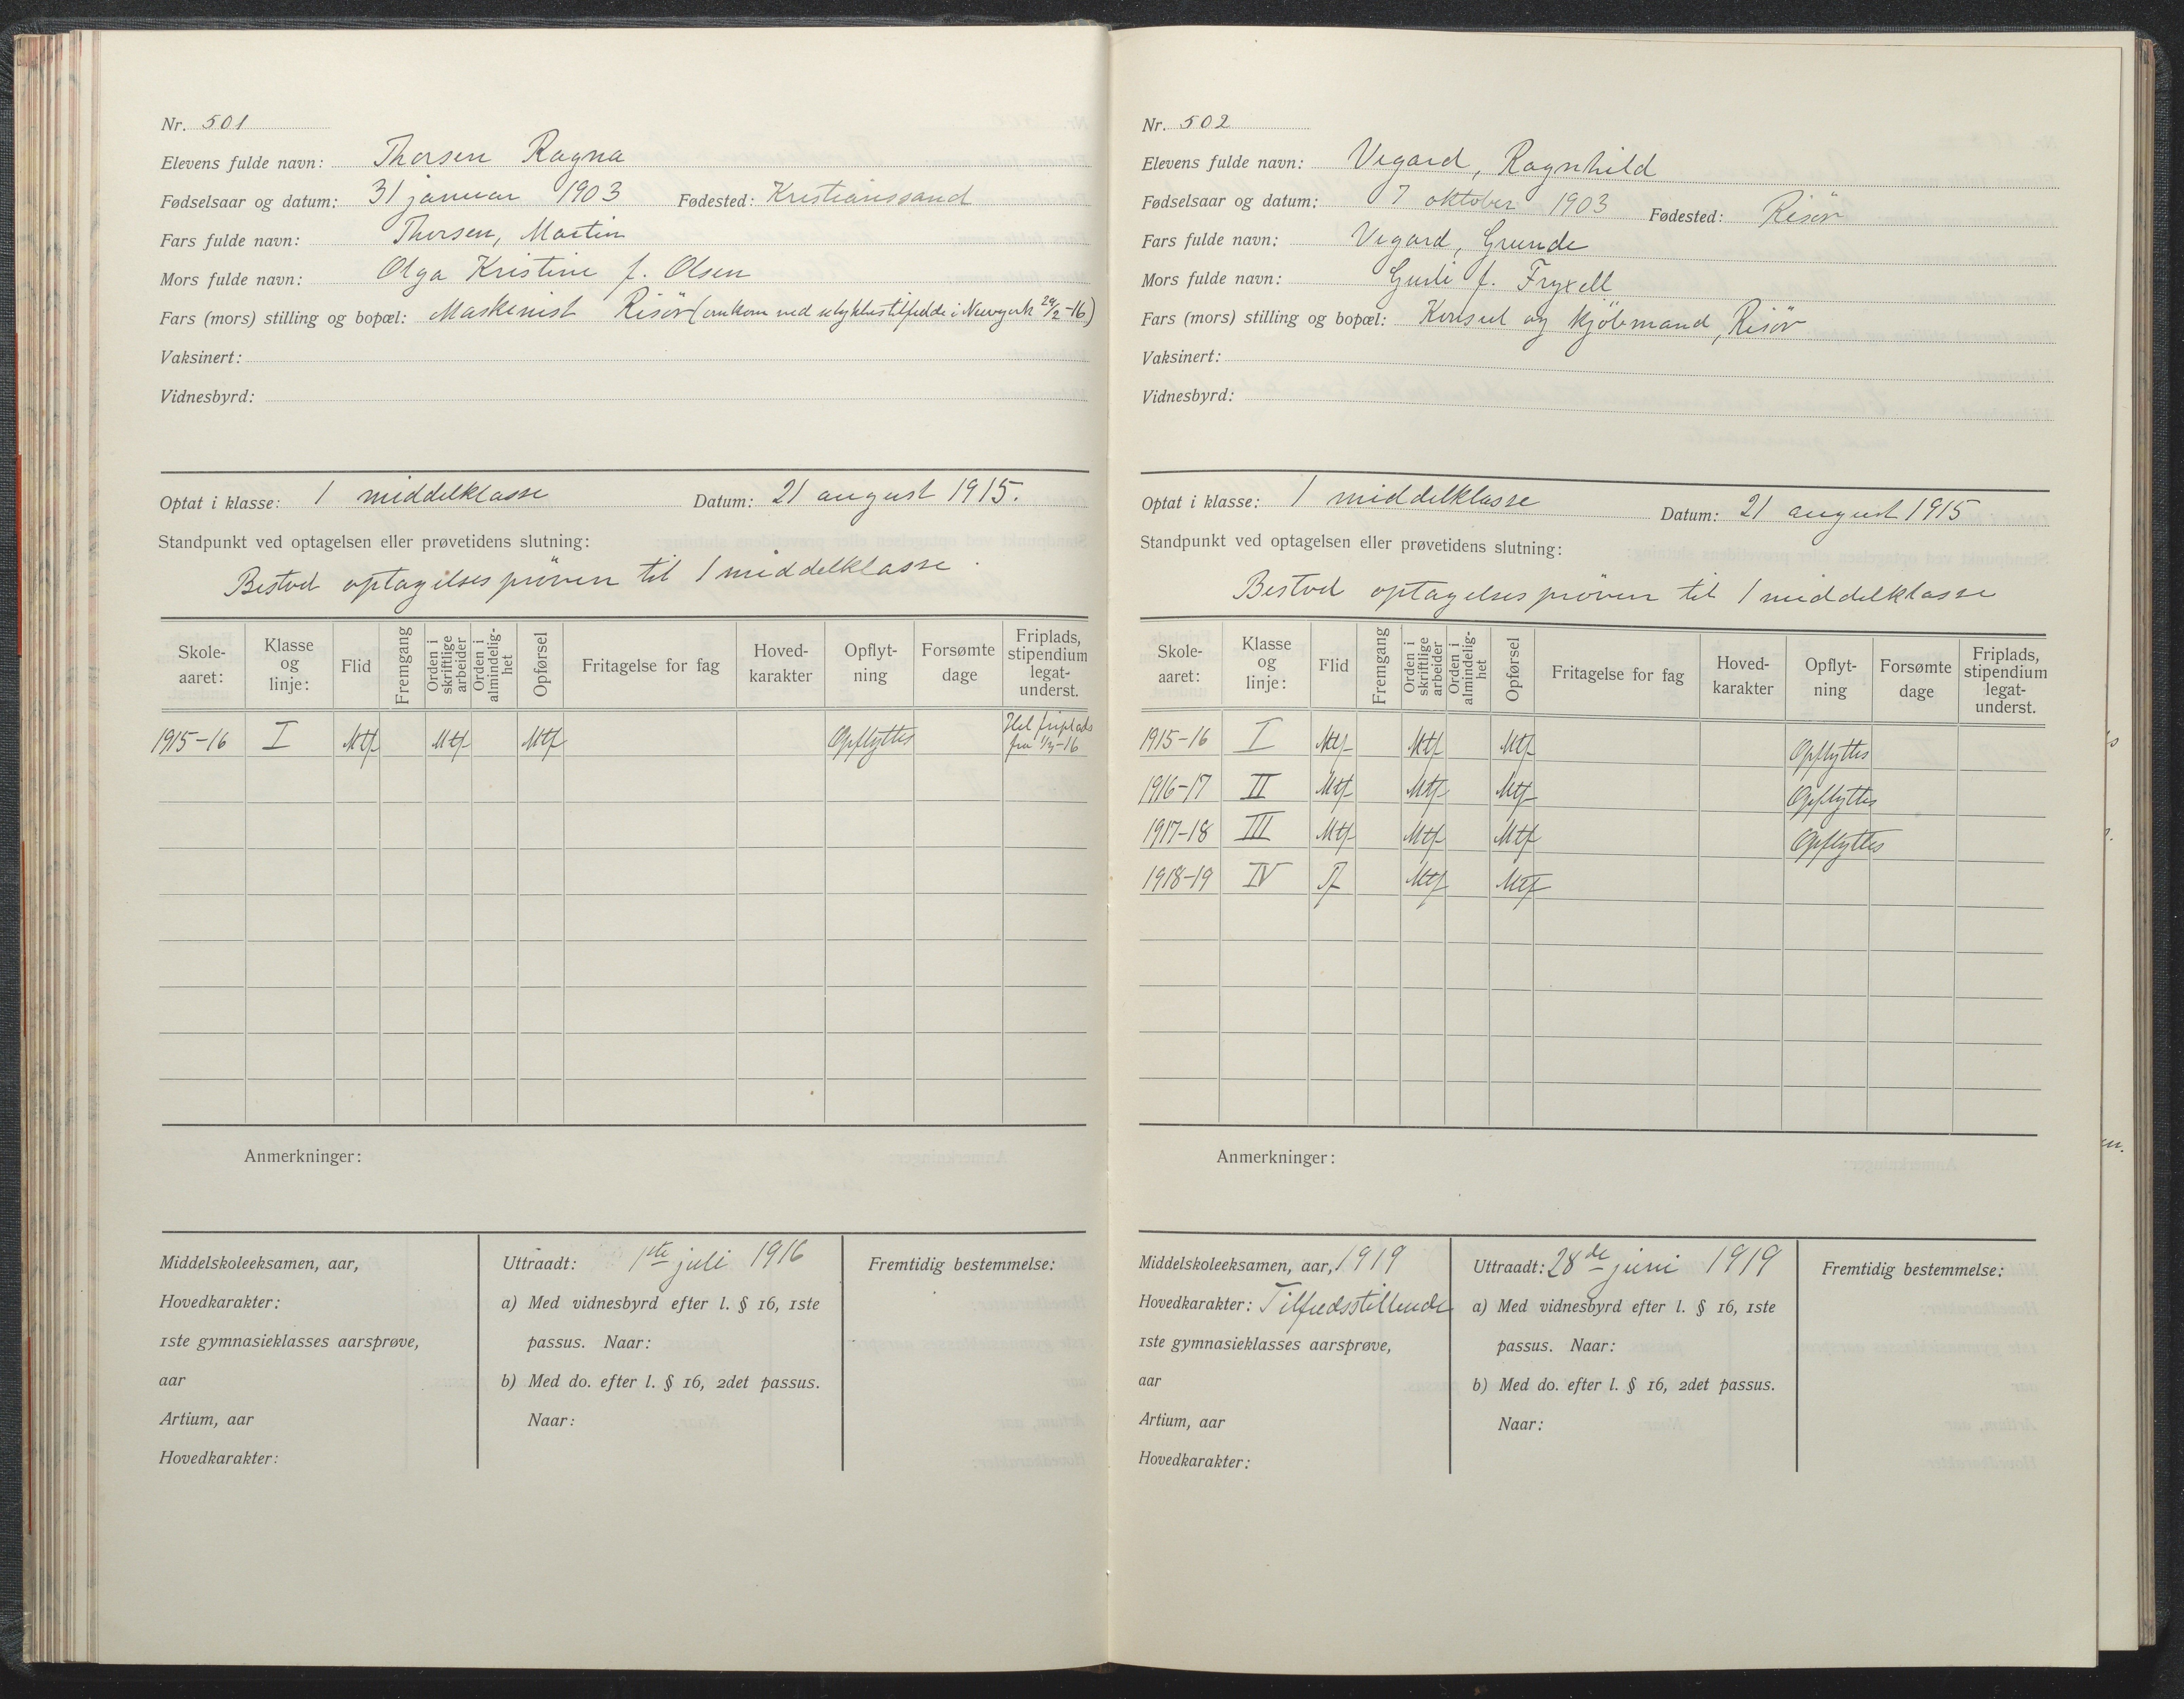 Nr. 501
Elevens fulde navn: Thorsen Ragna
Fødselsaar og datum: 31 januar 1903 Fødested: Kristianssand
Fars fulde navn: Thorsen, Martin
Mors fulde navn: Olga Kristine f. Olsen
Fars (mors) stilling og bopæl: Maskinist Risør (omkom ved ulykkestilfælde i Newyork 29/2-16)
Vaksinert:
Vidnesbyrd:
Optat i klasse: 1 middelklasse Datum: 21 august 1915.
Standpunkt ved optagelsen eller prøvetidens slutning:
Bestod optagelsesprøven til 1 middelklasse.
Skole-aaret: Klasse og linje: Flid Fremgang Orden i skriftlige arbeider Orden i almindelig-het Opførsel Fritagelse for fag Hoved-karakter Opflyt-ning Forsømte dage Friplads, stipendium legat-underst.
1915-16 I Mtf Mtf Mtf Opflyttes Hel friplads fra 1/3-16
Anmerkninger:
Middelskoleeksamen, aar,
Hovedkarakter:
1ste gymnasieklasses aarsprøve,
aar
Artium, aar
Hovedkarakter:
Uttraadt: 1ste juli 1916
a) Med vidnesbyrd efter l. § 16, 1ste
passus. Naar:
b) Med do. efter l. § 16, 2det passus.
Naar:
Fremtidig bestemmelse:
Nr. 502
Elevens fulde navn: Vegard, Ragnhild
Fødselsaar og datum: 7 oktober 1903 Fødested: Risør
Fars fulde navn: Vegard, Grunde
Mors fulde navn: Gurli f. Fryxell
Fars (mors) stilling og bopæl: Konsul og kjøbmand, Risör
Vaksinert:
Vidnesbyrd:
Optat i klasse: 1 middelklasse Datum: 21 august 1915
Standpunkt ved optagelsen eller prøvetidens slutning:
Bestod optagelsesprøven til 1 middelklasse
Skole-aaret: Klasse og linje: Flid Fremgang Orden i skriftlige arbeider Orden i almindelig-het Opførsel Fritagelse for fag Hoved-karakter Opflyt-ning Forsømte dage Friplads, stipendium legat-underst.
1915-16 I Mtf Mtf Mtf Opflyttes
1916-17 II Mtf Mtf Mtf Opflyttes
1917-18 III Mtf Mtf Mtf Opflyttes
1918-19 IV Tf Mtf Mtf
Anmerkninger:
Middelskoleeksamen, aar, 1919
Hovedkarakter: Tilfredsstillende
1ste gymnasieklasses aarsprøve,
aar
Artium, aar
Hovedkarakter:
Uttraadt: 28de juni 1919
a) Med vidnesbyrd efter l. § 16, 1ste
passus. Naar:
b) Med do. efter l. § 16, 2det passus.
Naar:
Fremtidig bestemmelse: